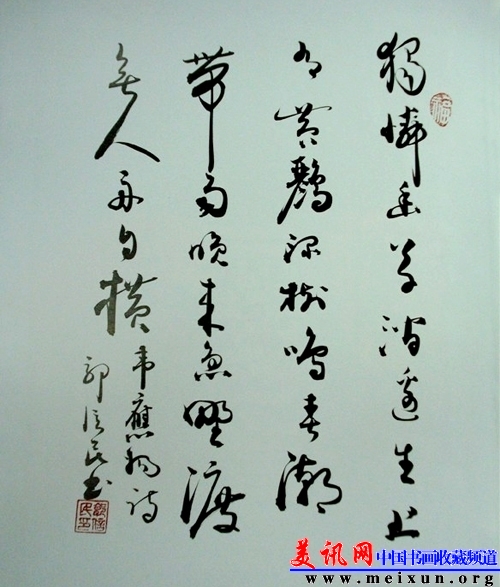 獨憐幽草澗邊生上
有黄鸝深樹鳴春潮
帶雨晚来急野渡
無人舟自横
韦應物詩
郭信民书
美讯网中国书画收藏频道
www.meixun.org